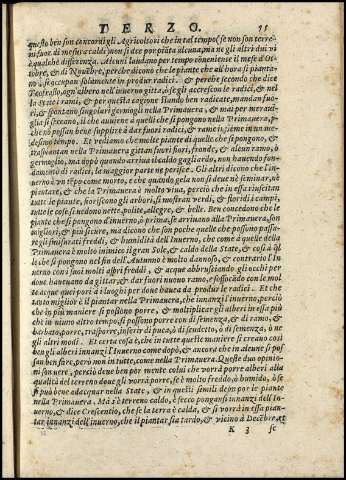 TERZO. 55
questo ben son concordi gli Agricoltori che in tal tempo (se non son terre
ni fuor di mesura caldi) non si dee por piāta alcuna, ma ne gli altri dui vi
è qualche differenza. Alcuni laudano per tempo cōueniente il mese d'Ot
tobre, & di Nouēbre, perche dicono che le piante che all'hora si pianta-
no, s'occupan solamente in produr radici. & perche secondo che dice
Teofrasto, ogn'albero nell'inuerno gitta, ò se gli accrescon le radici, & nel
la state i rami, & per questa cagione hauendo ben radicate, mandan fuo-
ri, & spuntano singulari germogli nella Primauera, & mai per meraui-
glia si seccano, il che auuiene à quelle che si pongono nella Primauera, per
che nō possan bene supplire à dar fuori radici, & rame insieme in un me-
desimo tempo. Et vediamo che molte piante di quelle che si pongono, &
traspiantan nella Primauera gittan fuori fiori, frondi, & alcun ramo, ò
germoglio, ma dopò quando arriua il caldo gagliardo, non hauendo fon-
damento di radici, la maggior parte ne perisce. Gli altri dicono che l'in-
uerno è vn tēpo come morto, e che quando gela non si deue nè seminar, nè
piantare, & che la Primauera è molto viua, perciò che in essa risuscitan
tutte le piante, fioriscono gli arbori, si mostran verdi, & floridi i campi,
tutte le cose si uedono nette, polite, allegre, & belle. Ben concedono che le
piante che si pongon d'inuerno, ò prima, se arriuano alla Primauera, son
migliori, & piu sicure, ma dicono che son poche quelle che possono passa-
re gli smisurati freddi, & humidità dell'Inuerno, che come à quelle della
Primauera è molto inimico il gran Sole, & caldo della State, & cosi à ql
le che si pongono nel fin dell'Autunno è molto dannoso, & contrario l'In
uerno con i suoi molti aspri freddi, & acque abbrusciando gli occhi per
doue haueuano da gittar, & dar fuori nuouo ramo, & soffocādo con le mol
te acque quei pori, & i luoghi per doue haueua da produr le radici. Et che
tanto miglior è il piantar nella Primauera, che innanzi l'Inuerno, perciò
che in piu maniere si possono porre, & multiplicare gli alberi in essa piu
che in niuno altro tempo, si possono porre con di semenza, & di ramo, &
barbato, porre, trasporre, inserir di puca, ò di scudetto, ò di semenza, ò ne
gli altri modi. Et certa cosa è, che in tutte quelle maniere si creano cosi
ben gli alberi innanzi l'Inuerno come dopò, & ancora che in alcune si pos
san ben fare, però non in tutte, come nella Primauera. Queste due opinio-
ni son vere, perciò deue ben por mente colui che vorrà porre alberi alla
qualità del terreno doue gli vorrà porre, se è molto freddo, ò humido, ò se
si può bene adacquar nella State, & in questi simili deon por le piante
nella Primauera. Ma s'è terreno caldo, è secco pongansi innanzi dell'In
uerno, & dice Crescentio, che se la terra è calda, & si vorrà in essa pian-
tar innanzi dell'inuerno, che il piantar sia tardo, & vicino à Decēbre, et
K 3 se